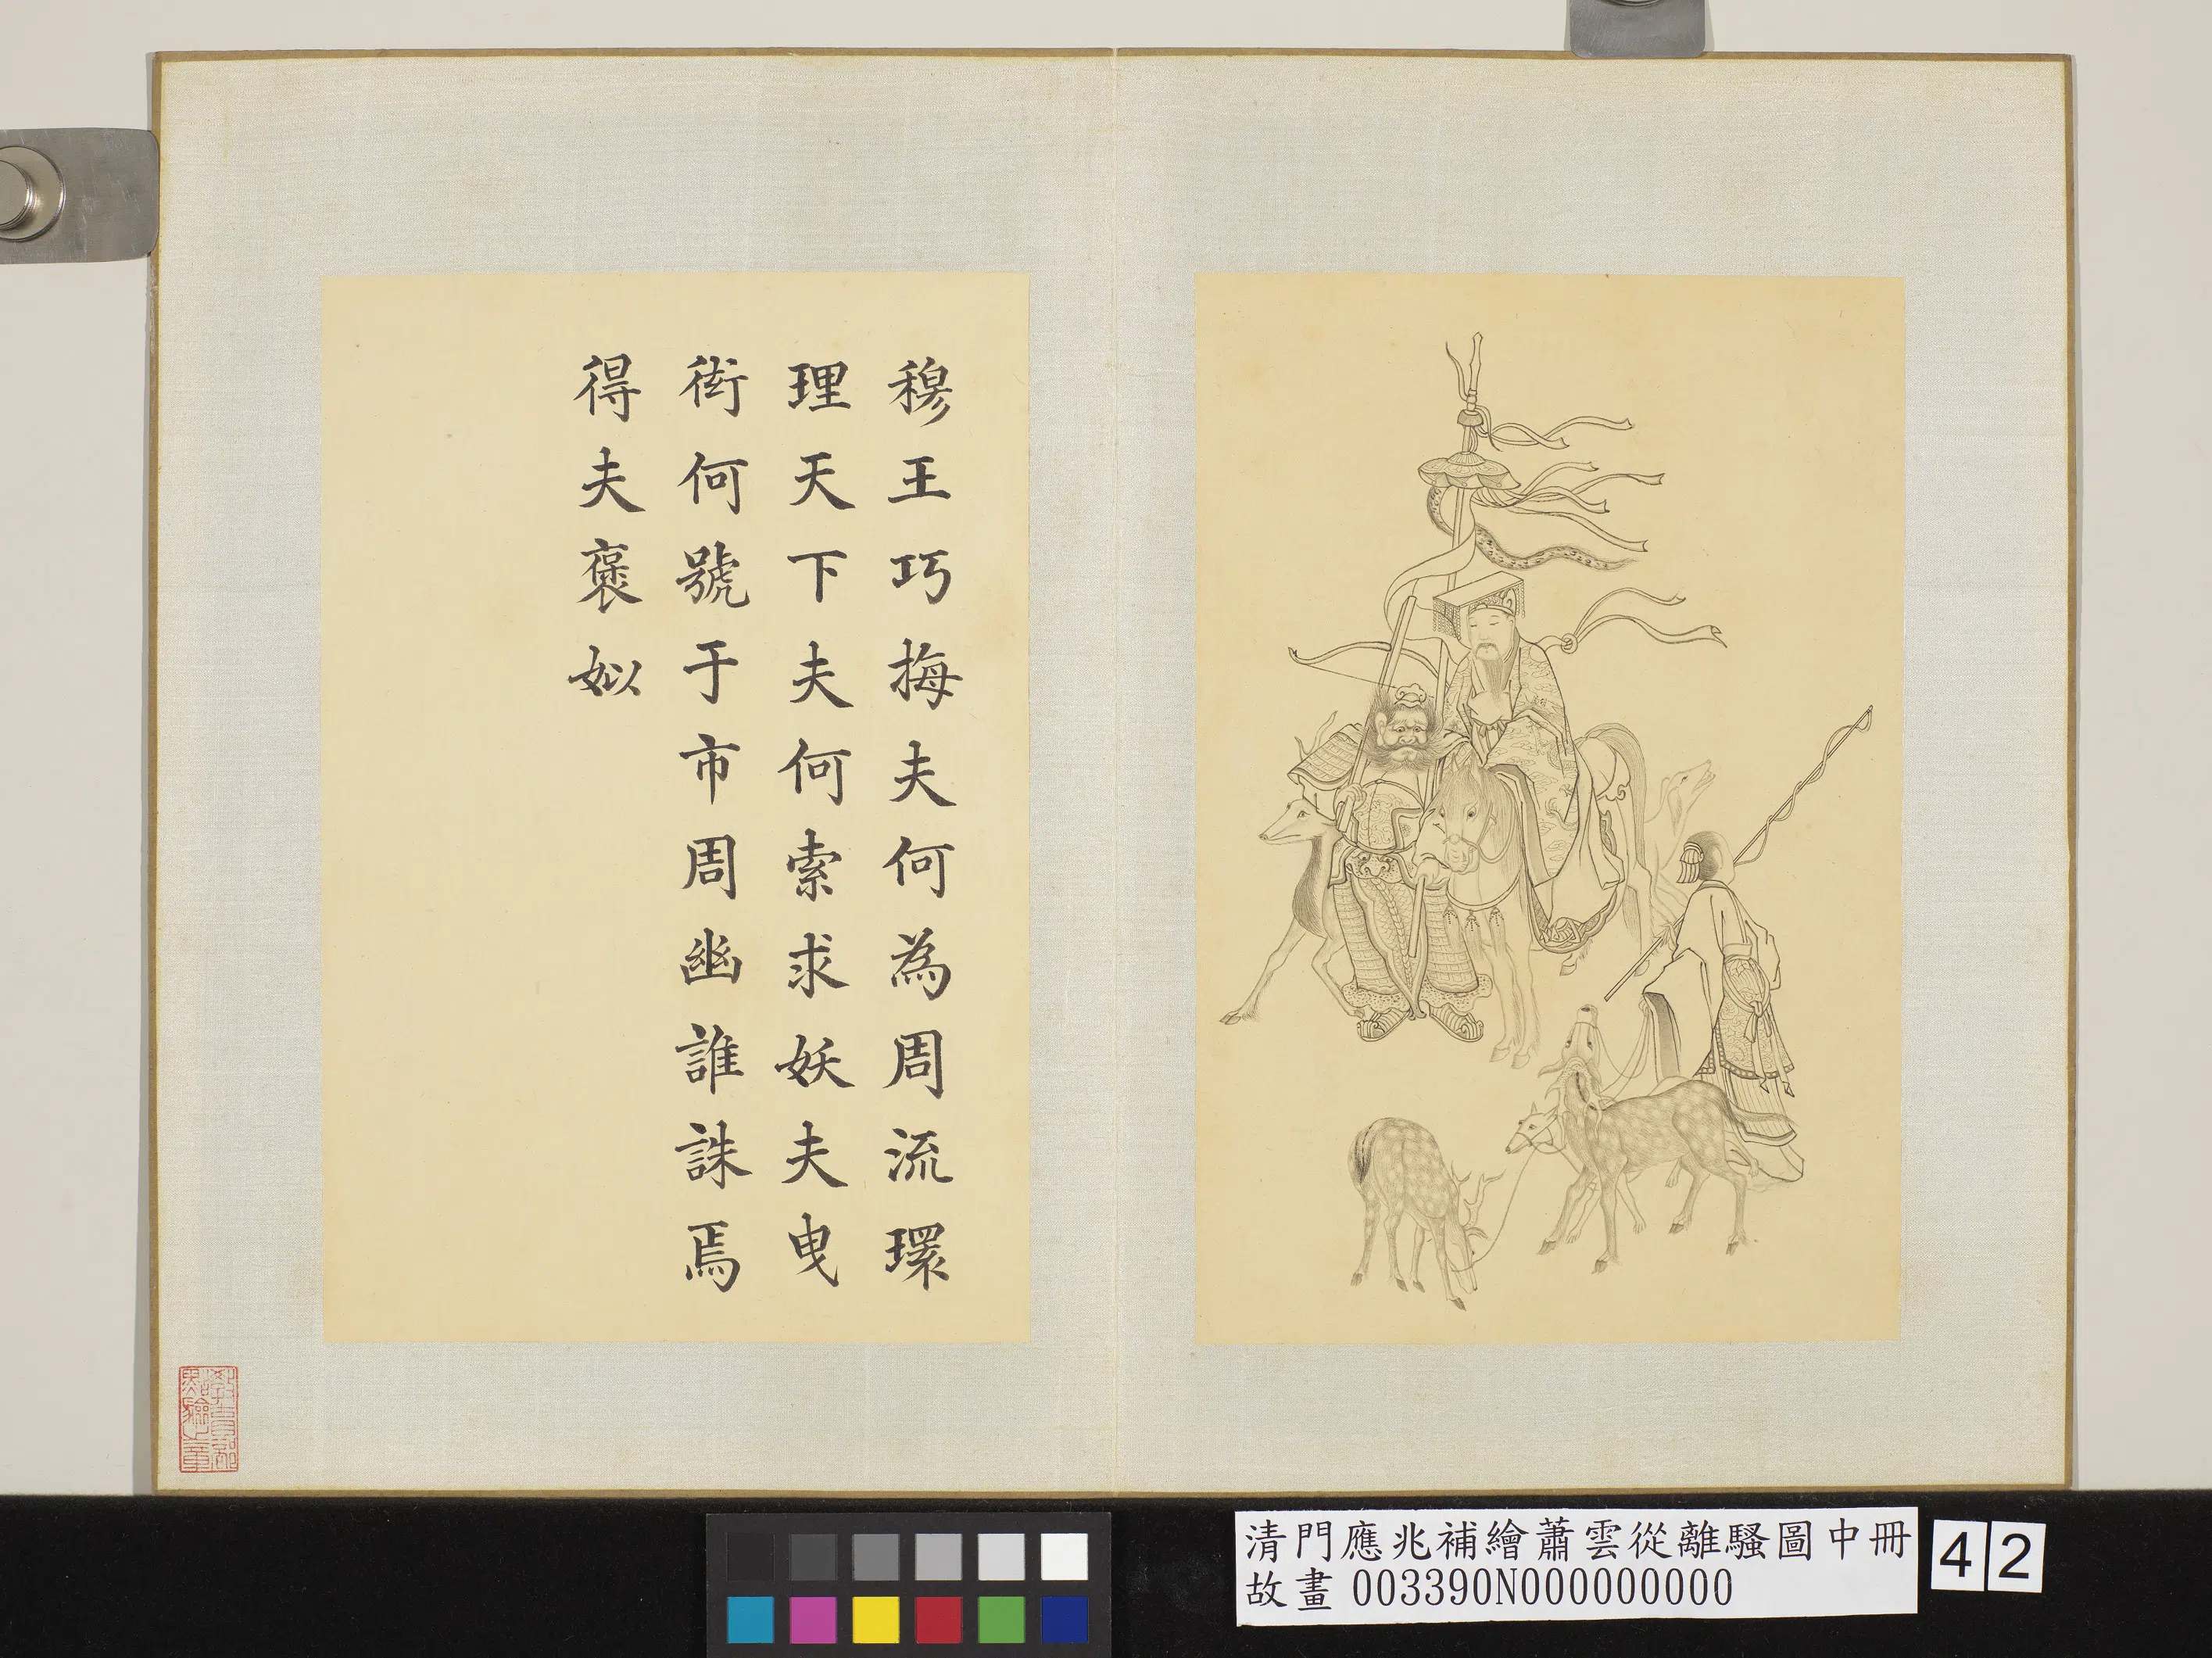 穆王巧梅夫何為周流環
理天下夫何索求妖夫曳
衒何號于市周幽誰誅焉
得夫褒姒
教育部
點驗之章
清門應兆補繪蕭雲從離騷圖中冊
故畫 003390N000000000
42